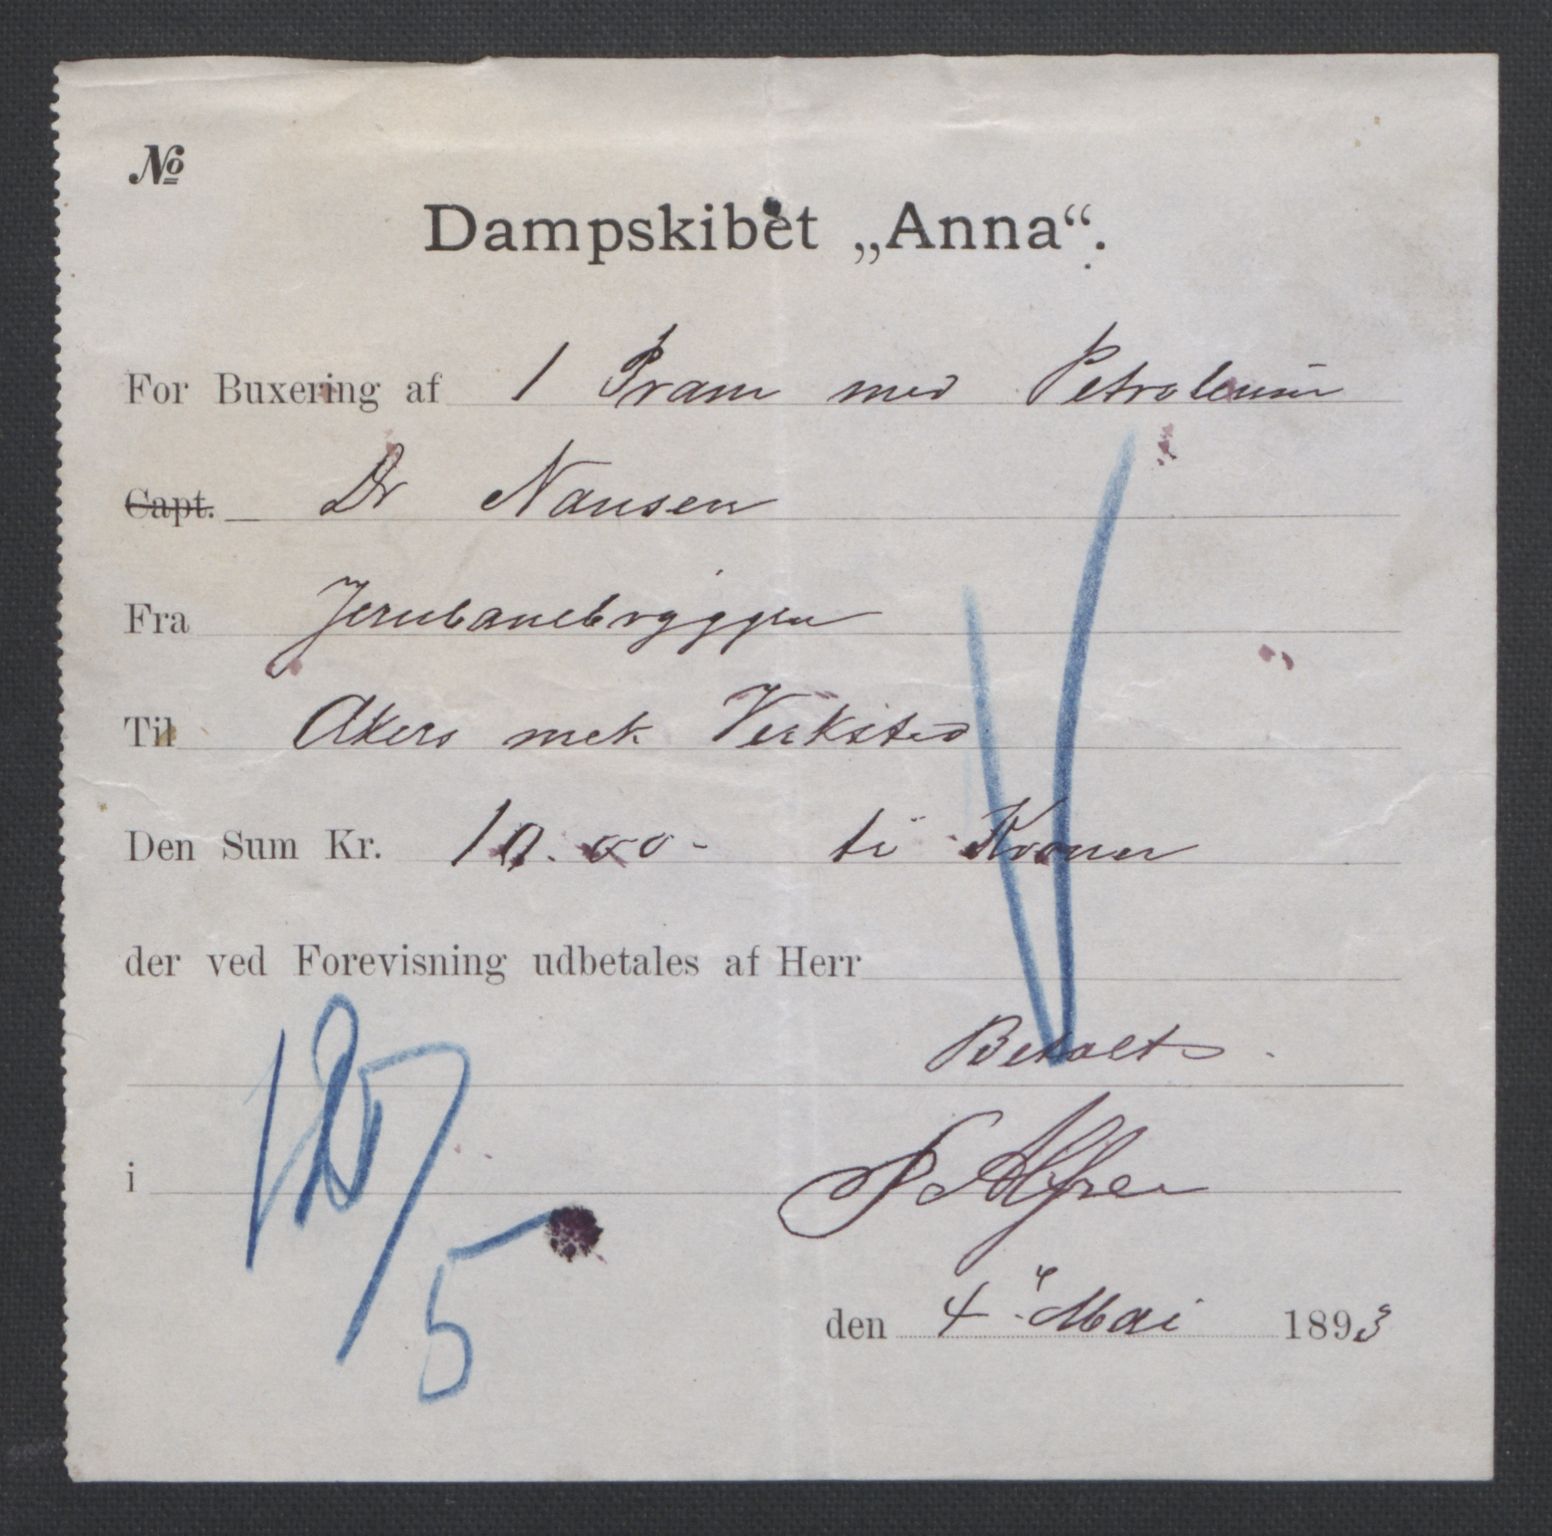 №
Dampskibet „Anna“.
For Buxering af 1 Pram med Petroleum
Capt. Dr Nansen
Fra Jernbanebryggen
Til Akers mek Verksted
Den Sum Kr. 10.00- ti Kroner
der ved Forevisning udbetales af Herr
Betalt
i
den 4 Mai 1893
5